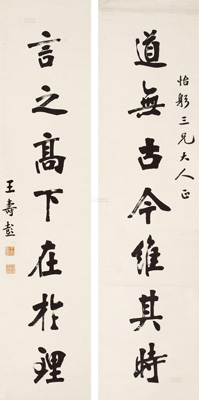 怡躬三兄大人正
道無古今維其時
言之高下在於理
王壽彭